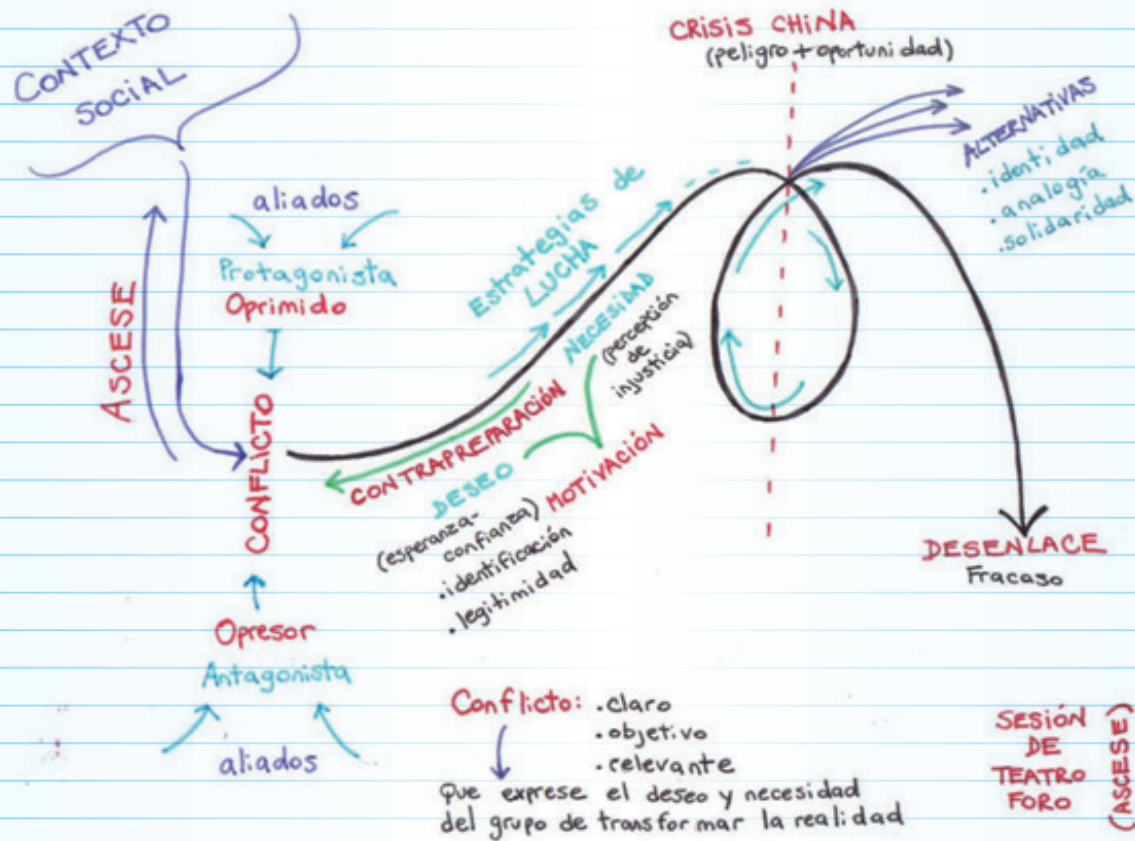 CONTEXTO
SOCIAL
ASCESE
aliados
Protagonista
Oprimido
CONFLICTO
Opresor
Antagonista
aliados
Estrategias de
LUCHA
NECESIDAD
(percepción
de
injusticia)
CONTRAPREPARACIÓN
DESEO
(esperanza-
confianza)
.identificación
.legitimidad
MOTIVACIÓN
CRISIS CHINA
(peligro + oportunidad)
ALTERNATIVAS
.identidad
.analogía
.solidaridad
DESENLACE
Fracaso
Conflicto: .claro
.objetivo
.relevante
Que exprese el deseo y necesidad
del grupo de transformar la realidad
SESIÓN
DE
TEATRO
FORO
(ASCESE)